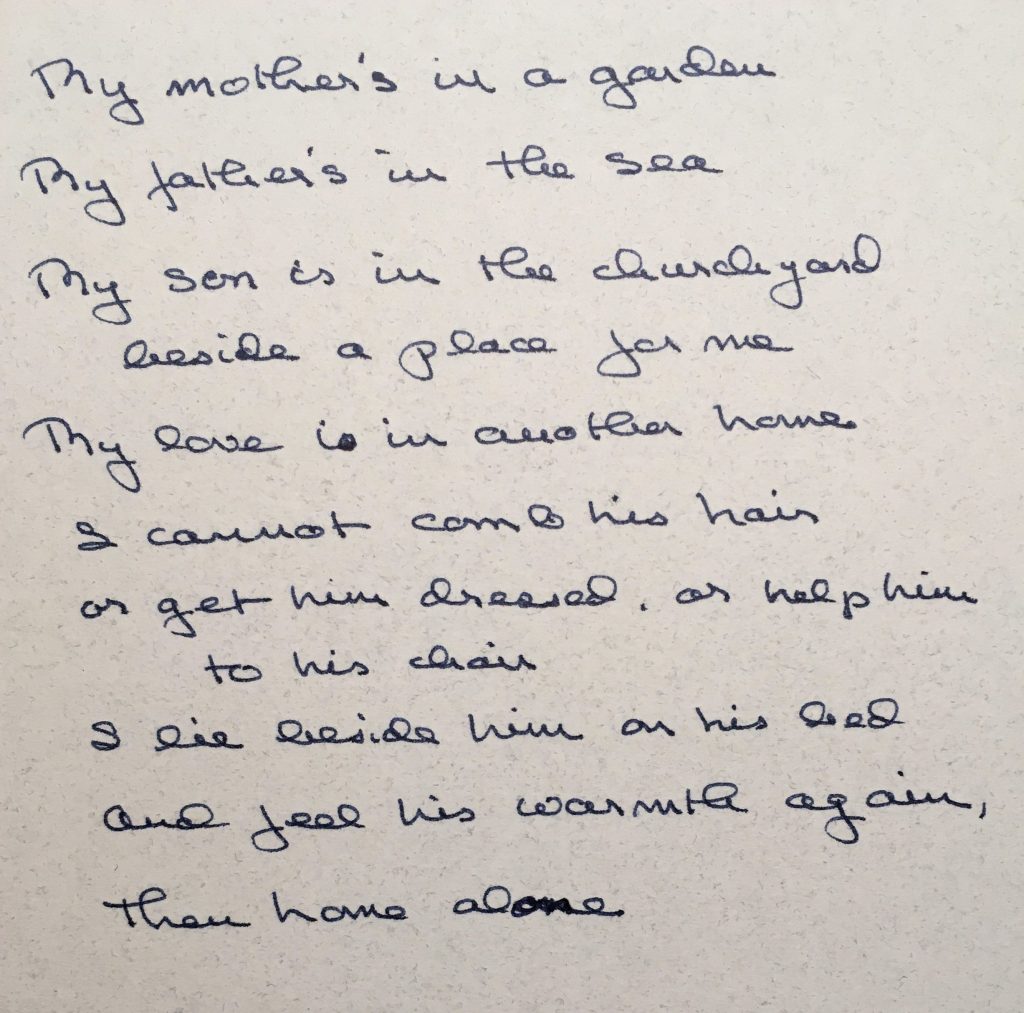 My mother's in a garden
My father's in the sea
My son is in the churchyard
beside a place for me
My love is in another home
I cannot comb his hair
or get him dressed, or help him
to his chair
I lie beside him on his bed
And feel his warmth again,
then home alone